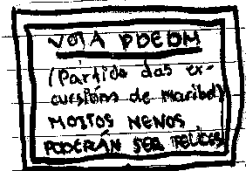 VOTA PDEDM
(Partido das ex-
cursións de Maribel)
MOITOS NENOS
PODERÁN SER FELICES